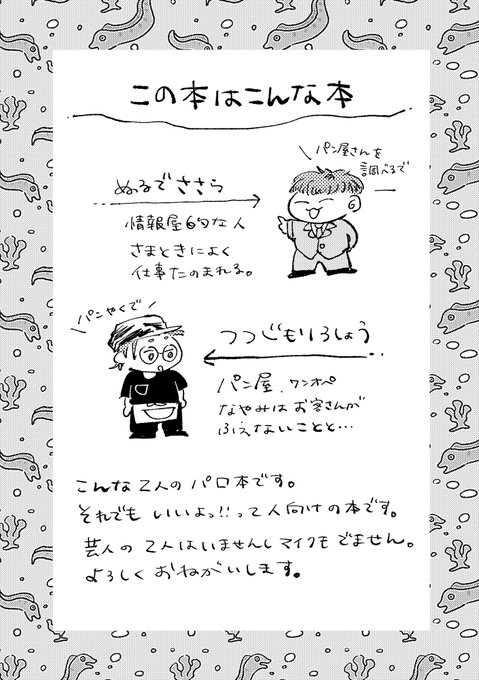 この本はこんな本
パン屋さんを
調べるで
ぬるでささら
情報屋的な人
さまときによく
仕事たのまれる。
パンやくで
つつじもりろしょう
パン屋、ワンオペ
なやみはお客さんが
ふえないことと…
こんな2人のパロ本です。
それでもいいよっ!!って人向けの本です。
芸人の2人はいませんしマイクもでません。
よろしくおねがいします。